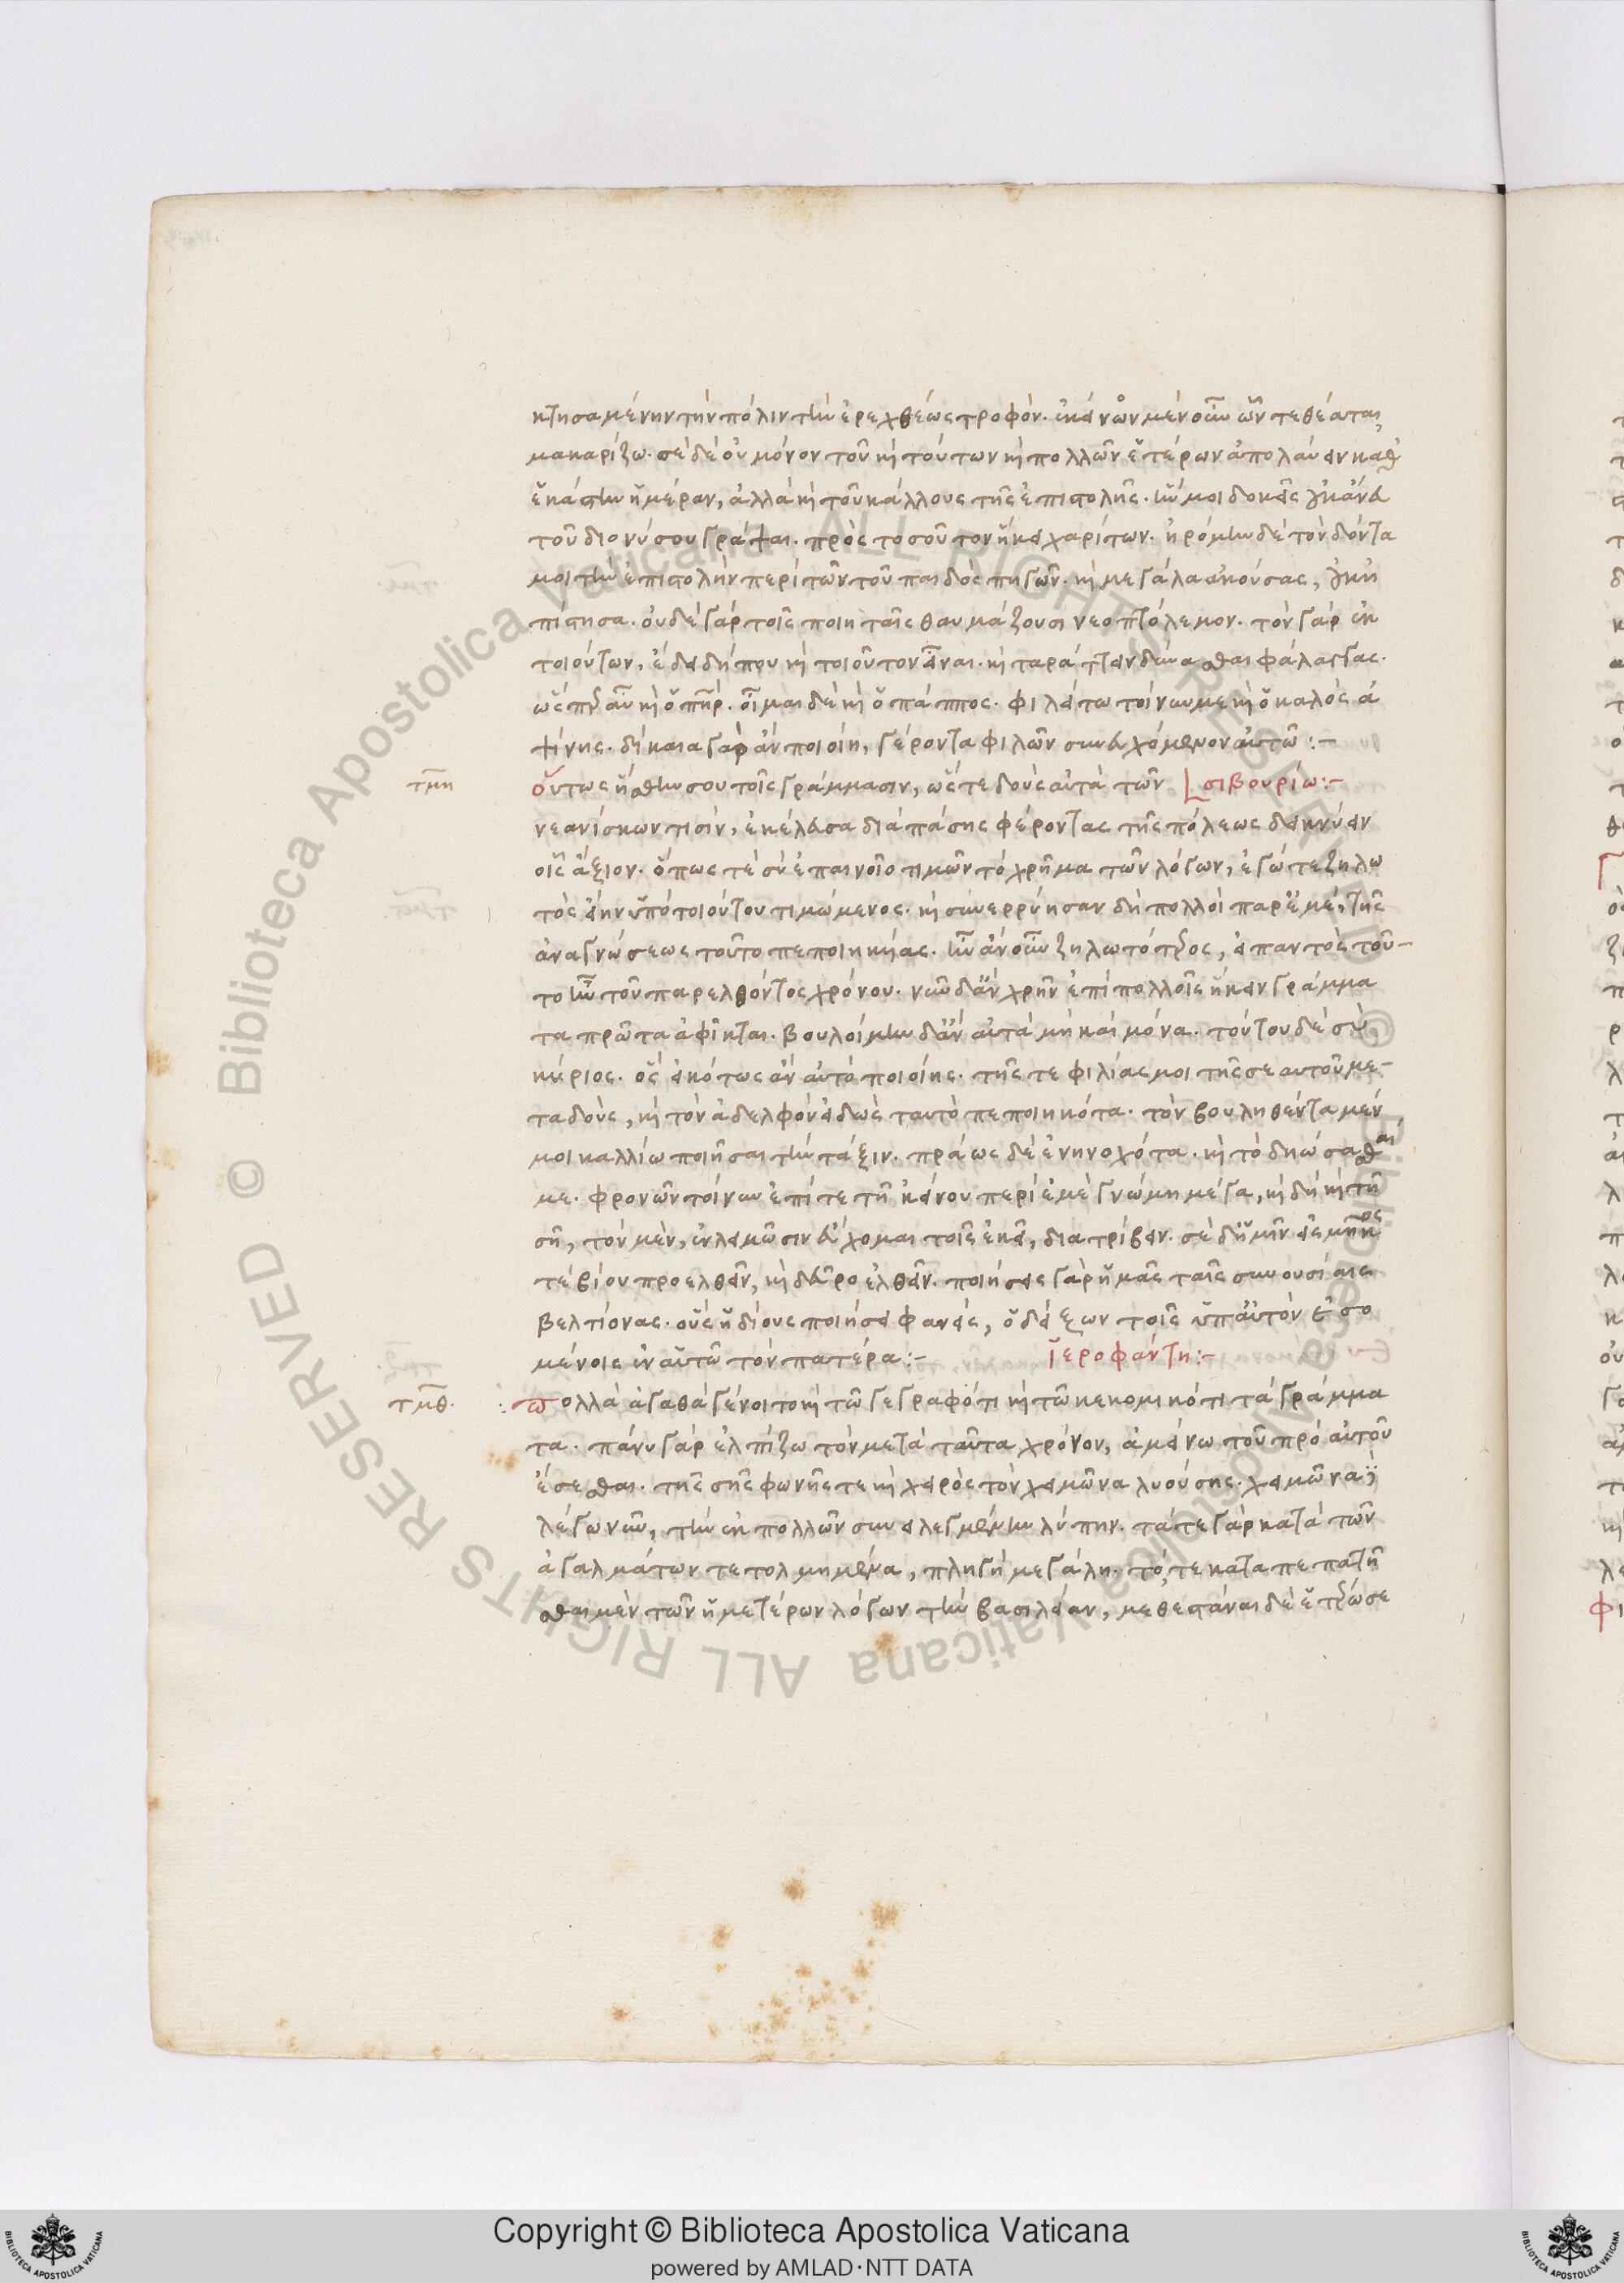 κτησαμένην τὴν πόλιν τὴν ἐρεχθέως τροφόν. ἐκείνων μὲν οὖν ὧν τεθέαται,
μακαρίζω. σὲ δὲ οὐ μόνον τοῦ καὶ τούτων καὶ πολλῶν ἑτέρων ἀπολαύειν καθ
ἑκάστην ἡμέραν, ἀλλὰ καὶ τοῦ κάλλους τῆς ἐπιστολῆς. ἥν μοι δοκεῖς
τοῦ διονύσου γράψαι. πρὸς τοσοῦτον ἥκει χαρίτων. ἠρόμην δὲ τὸν δόντα
μοι τὴν ἐπιστολὴν περὶ τῶν τοῦ παιδὸς πηγῶν. καὶ μεγάλα ἀκούσας, οὐκ ἠ
πίστησα. οὐδὲ γὰρ τοῖς ποιηταῖς θαυμάζουσι νεοπτόλεμον. τὸν γὰρ ἐκ
τοιούτων, ἔδει δήπου καὶ τοιοῦτον εἶναι. καὶ ταράττειν δύνασθαι φάλαγγας.
ὥσπερ αὖ καὶ ὁ πηρ. οἶμαι δὲ καὶ ὁ πάππος. φιλείτω τοίνυν με καὶ ὁ καλὸς ἀ
ψίνης. δίκαια γὰρ ἂν ποιοίη, γέροντα φιλῶν συνευχόμενον αὐτῶ :-
τμη οὕτως ἥσθην σου τοῖς γράμμασιν, ὥστε δοὺς αὐτὰ τῶν σιβουρίω :-
νεανίσκων τισίν, ἐκέλευσα διὰ πάσης φέροντας τῆς πόλεως δεικνύειν
οἷς ἄξιον. ὅπως τὲ σὺ ἐπαινοῖο τιμῶν τὸ χρῆμα τῶν λόγων, ἐγώ τε ζηλω
τὸς εἴην ὑπὸ τοιούτου τιμώμενος. καὶ συνερρύησαν δὴ πολλοὶ παρ' ἐμέ, τῆς
ἀναγνώσεως τοῦτο πεποιηκυίας. ἦν ἂν οὖν ζηλωτότερος, εἰ παντὸς τοῦ-
το ἦν τοῦ παρελθόντος χρόνου. νῦν δ' ἃν χρῆν ἐπὶ πολλοῖς ἥκειν γράμμα
τα πρῶτα ἀφῖκται. βουλοίμην δ' ἂν αὐτὰ μὴ καὶ μόνα. τούτου δὲ σὺ,
κύριος. ὃς εἰκότως ἂν αὐτὸ ποιοίης. τῆς τε φιλίας μοι τῆς σεαυτοῦ με-
ταδοὺς, καὶ τὸν ἀδελφὸν εἰδὼς ταυτὸ πεποιηκότα. τὸν βουληθέντα μέν
μοι καλλίω ποιῆσαι τὴν τάξιν. πράως δὲ ἐνηνοχότα. καὶ τὸ δηώσασθαί
με. φρονῶν τοίνυν ἐπί τε τῆ ἐκείνου περὶ ἐμὲ γνώμη μέγα, καὶ δὴ καὶ τῆ
σῆ, τὸν μὲν, ἐν λειμῶσιν εὔχομαι τοῖς ἐκεῖ, διατρίβειν. σὲ δ' ἡμῖν εἰς μῆκος
τὲ βίου προελθεῖν, καὶ δεῦρο ἐλθεῖν. ποιήσεις γὰρ ἡμᾶς ταῖς συνουσίαις
βελτίονας. οὓς ἡδίους ποιήσει φανείς, ὁ δείξων τοῖς ὑπ' αὐτὸν ἐσο
μένοις ἐν αὑτῶ τὸν πατέρα :- ἱεροφάντη :-
τμθ. πολλὰ ἀγαθὰ γένοιτο καὶ τῶ γεγραφότι καὶ τῶ κεκομικότι τὰ γράμμα
τα. πάνυ γὰρ ἐλπίζω τὸν μετὰ ταῦτα χρόνον, ἀμείνω τοῦ πρὸ αὐτοῦ
ἔσεσθαι. τῆς σῆς φωνῆς τε καὶ χειρὸς τὸν χειμῶνα λυούσης. χειμῶνα
λέγω νῦν, τὴν ἐκ πολλῶν συνειλεγμένην λύπην. τά τε γὰρ κατὰ τῶν
ἀγαλμάτων τετολμημένα, πληγὴ μεγάλη. τό, τε καταπεπατῆ
σθαι μὲν τῶν ἡμετέρων λόγων τὴν βασιλείαν, μεθεστάναι δὲ ἑτέρωσε
Copyright © Biblioteca Apostolica Vaticana
powered by AMLAD·NTT DATA
© Biblioteca Apostolica Vaticana ALL RIGHTS RESERVED
© Biblioteca Apostolica Vaticana ALL RIGHTS RESERVED